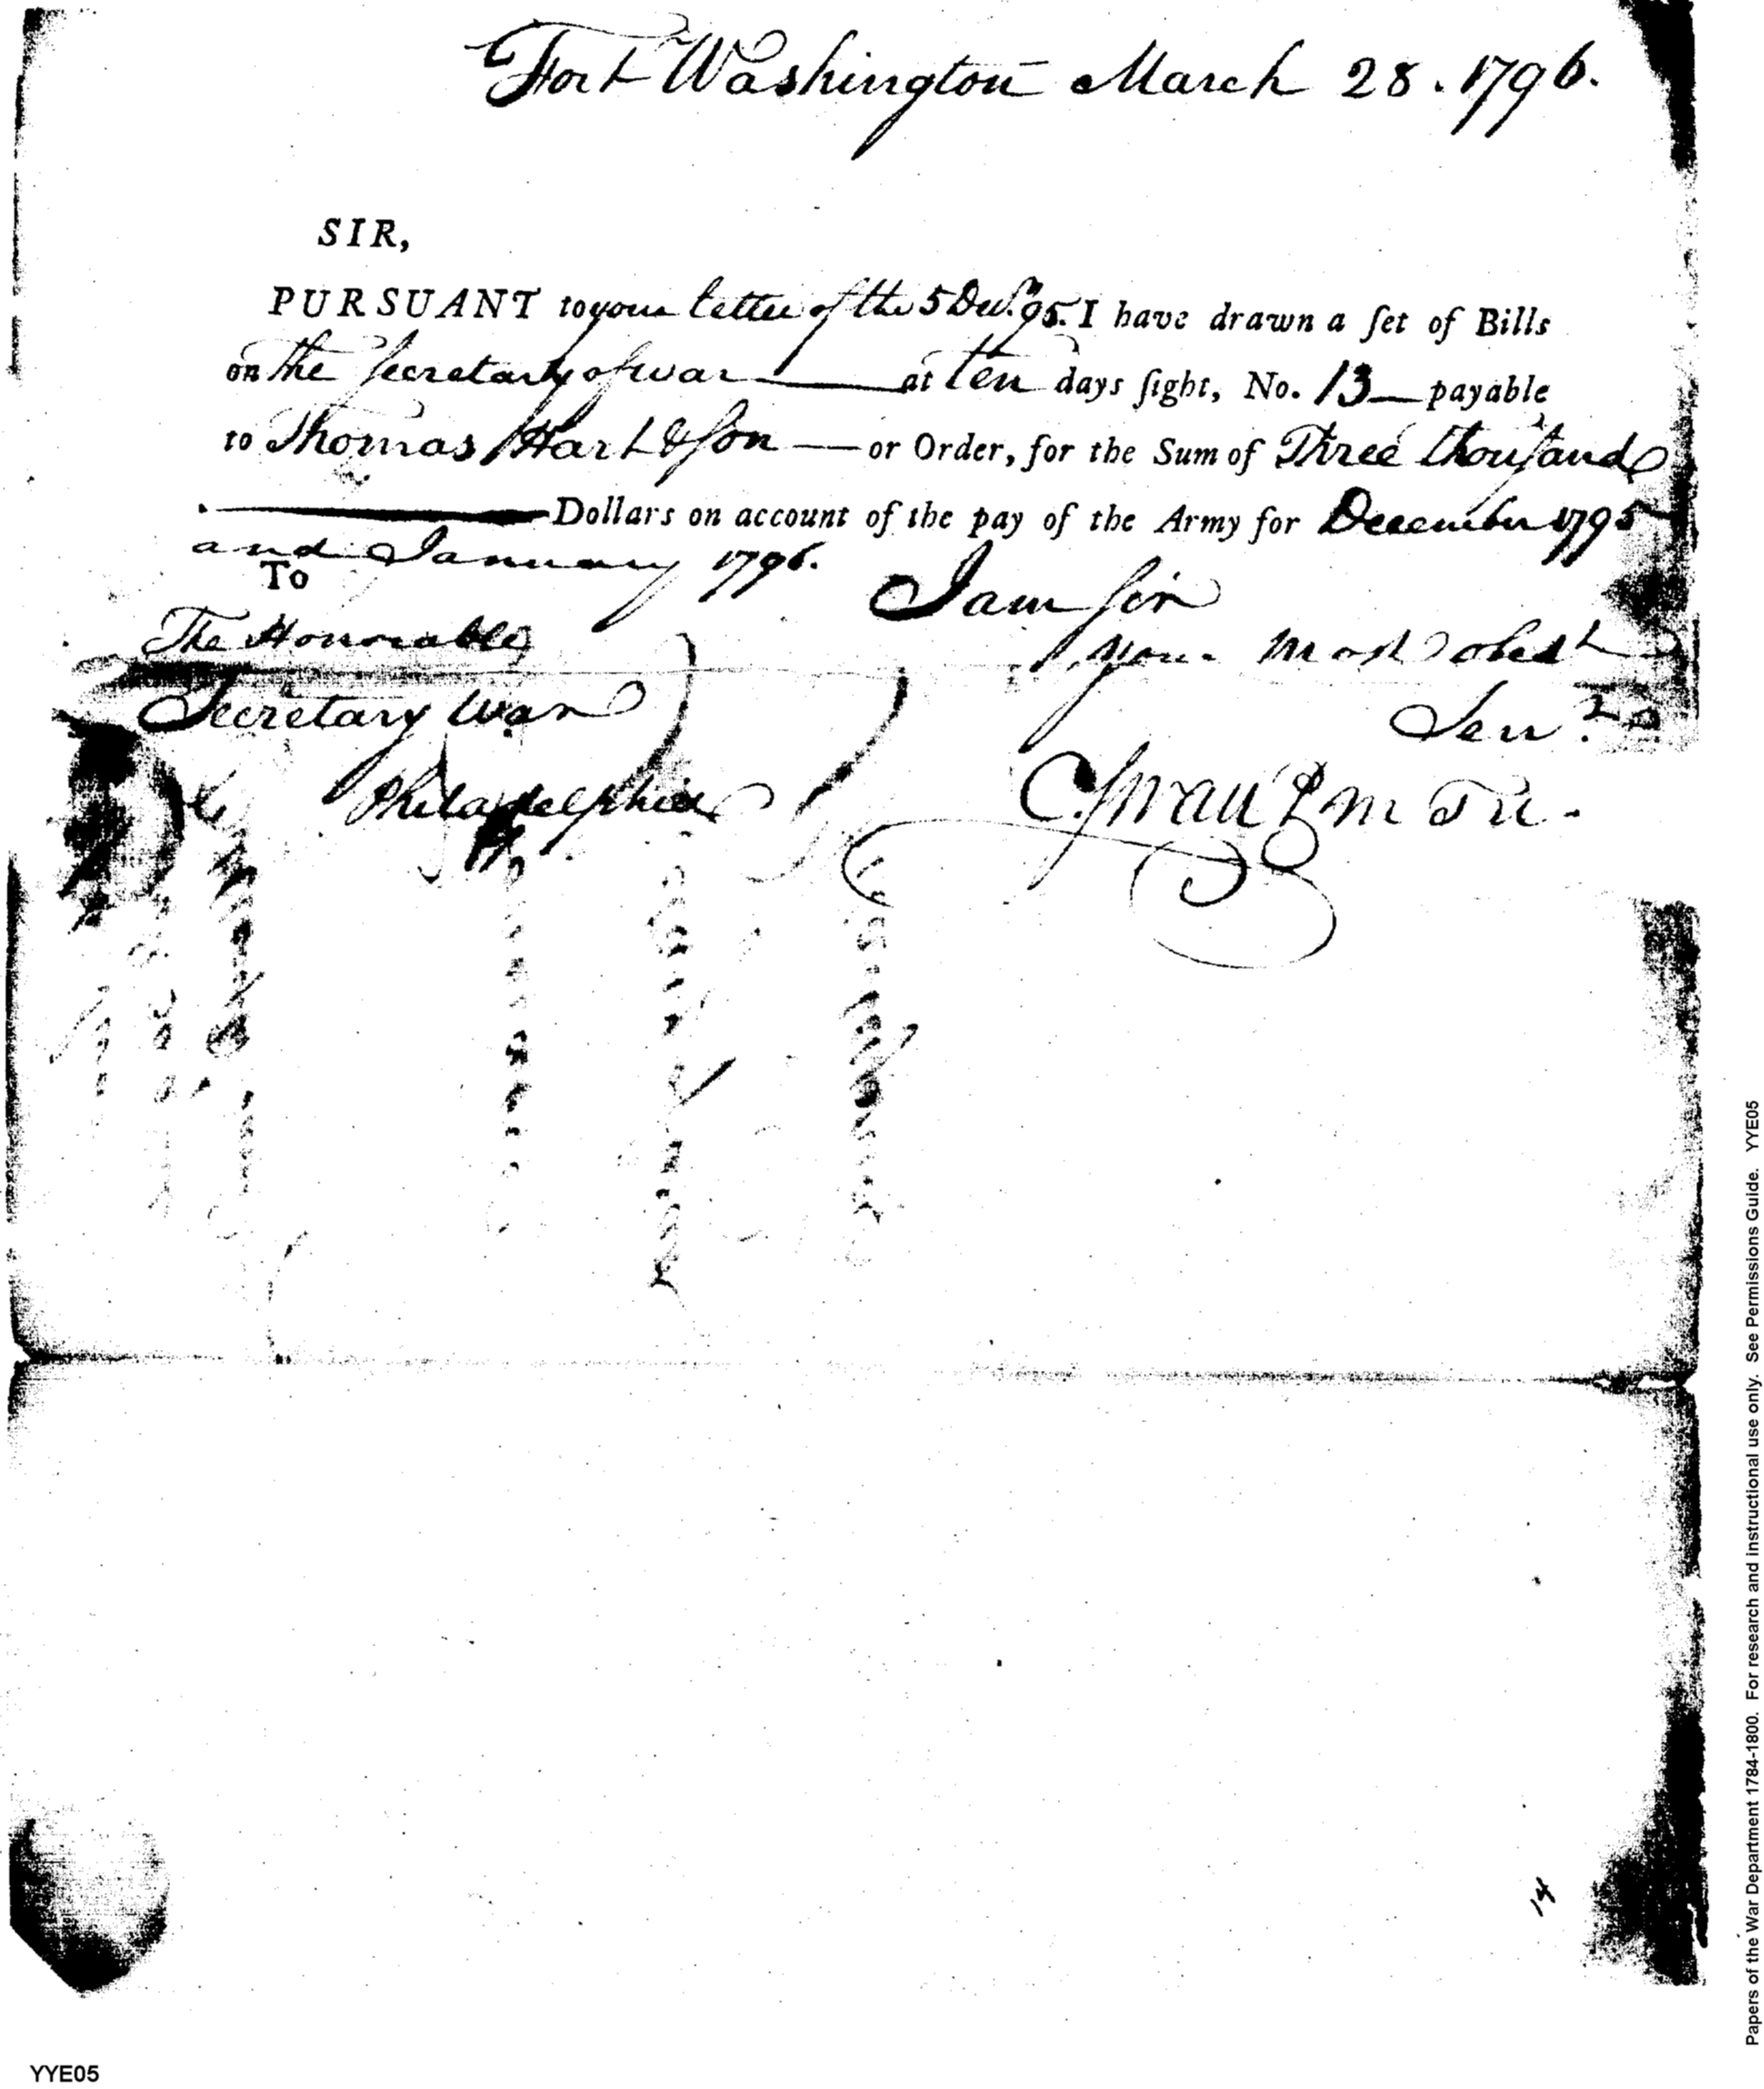 Fort Washington March 28. 1796.
SIR,
PURSUANT to your letter of the 5 Decr. 95. I have drawn a ſet of Bills
on the Secretary of war at ten days ſight, No. 13 payable
to Thomas Hart & Son or Order, for the Sum of Three thouſand
Dollars on account of the pay of the Army for December 1795
and January 1796.
To
I am Sir
The Honorable
your most obedt
Secretary War
Servt
Philadelphia
C Swan P M Tr.
14
Papers of the War Department 1784-1800. For research and instructional use only. See Permissions Guide. YYE05
YYE05